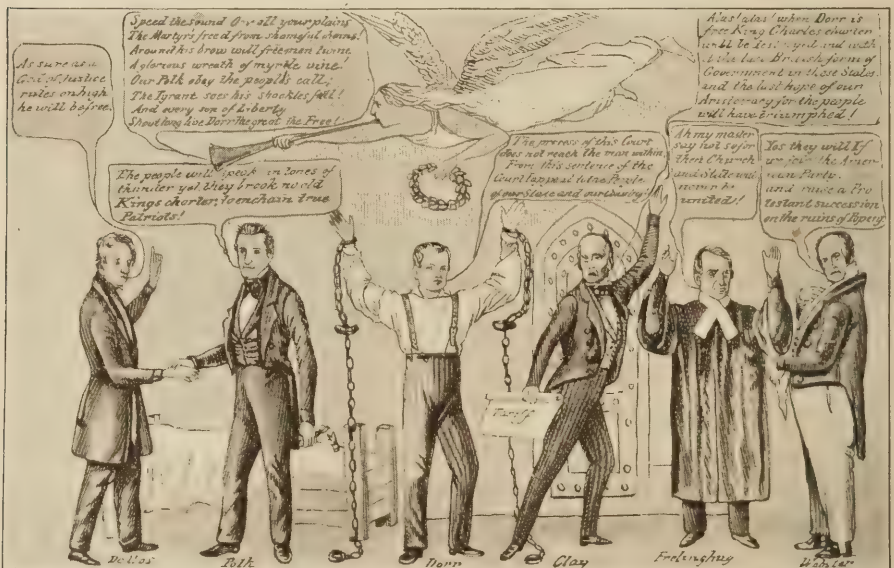 As sure as a
God of Justice
rules on high
he will be free.
Speed the sound O-er all your plains
The Martyr's freed from shameful chains!
Around his brow will freemen twine
A glorious wreath of myrtle vine!
Our Polk obey the people's call;
The Tyrant sees his shackles fall!
And every son of Liberty
Shout long live Dorr The great the Free!
The people will speak in tones of
thunder yet, they brook no old
Kings charter, to enchain true
Patriots!
The process of this Court
does not reach the man within,
From this sentence of the
Court I appeal to the People
of our State and our Country!
Alas! alas! when Dorr is
free King Charles charter
will be destroyed and with
it the last British form of
Government in these States.
and the last hope of our
Aristocracy for the people
will have triumphed!
Ah my master
say not so for
then Church
and State will
never be
united!
Yes they will If
we join the Amer-
ican Party.
and raise a Pro
testant succession
on the ruins of Popery.
Tariff
Dallas
Polk
Dorr
Clay
Frelinghug
Webster